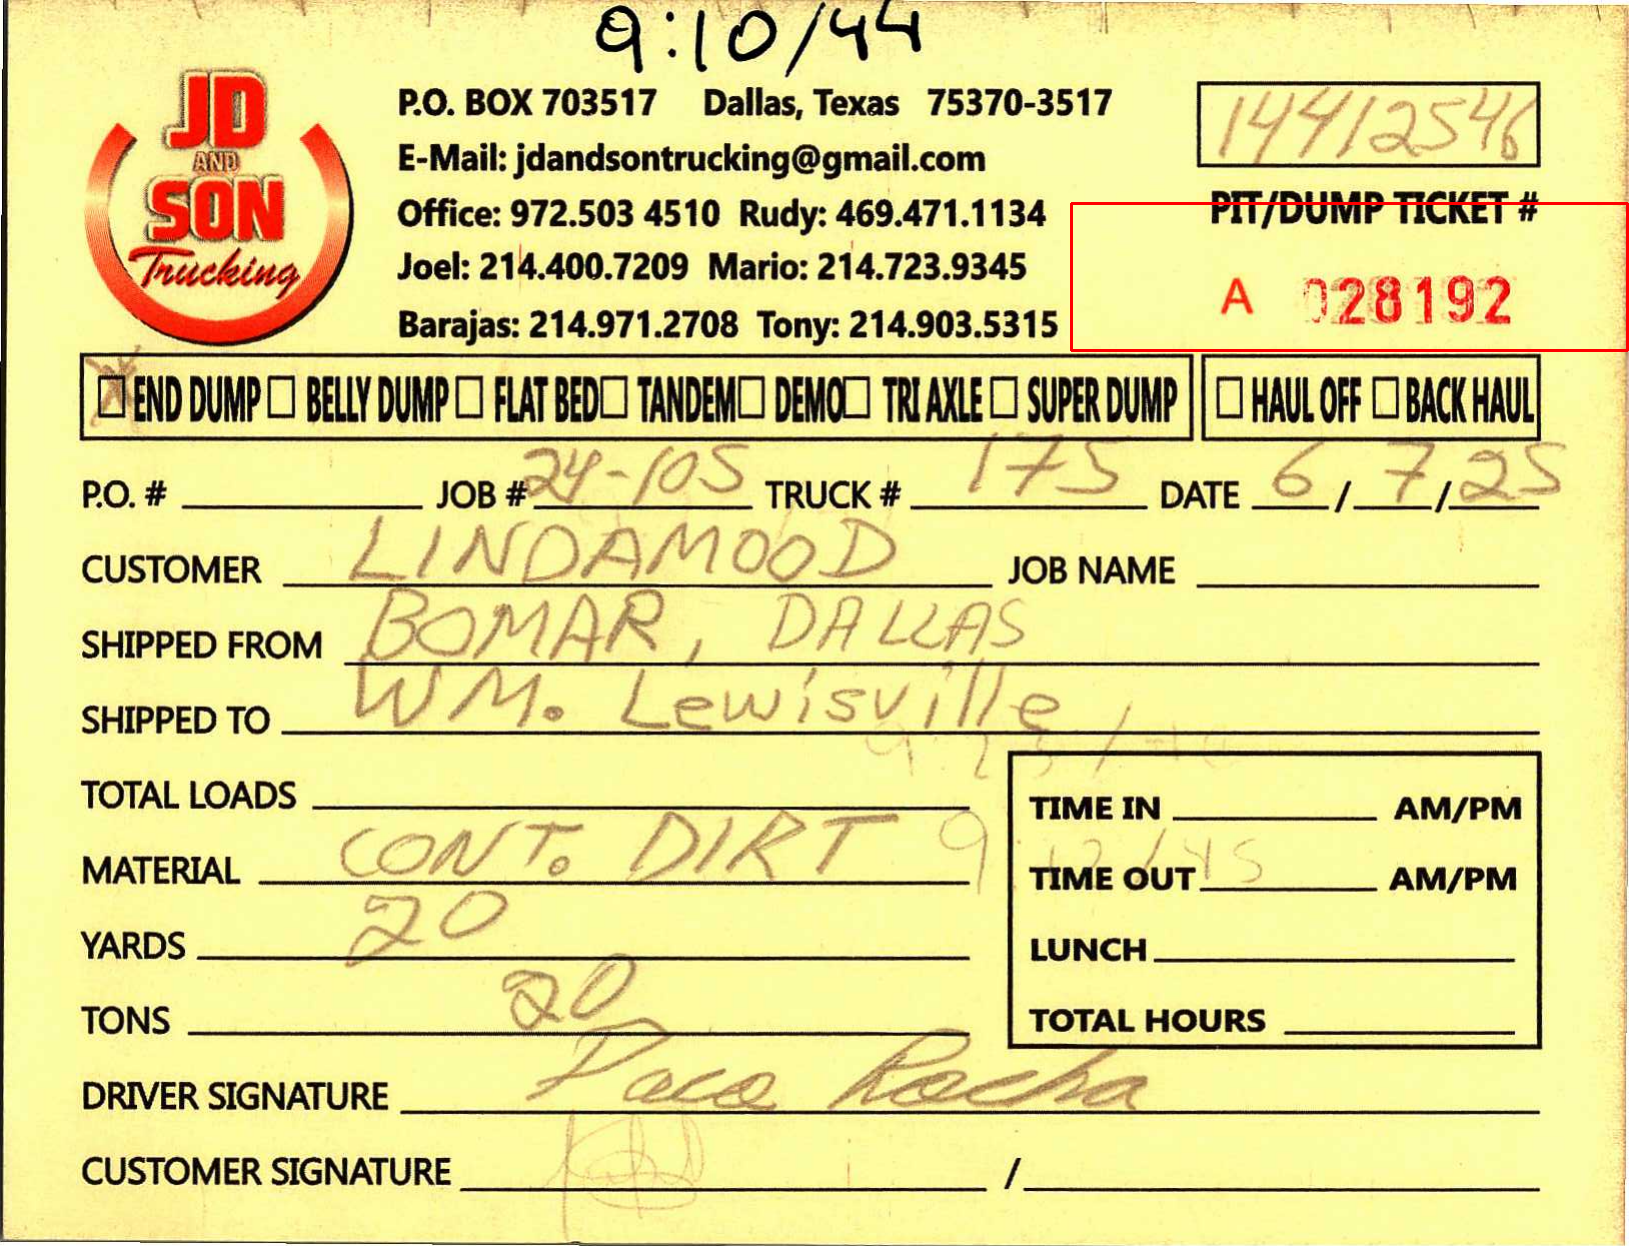 9:10/44
JD
AND
SON
Trucking
P.O. BOX 703517 Dallas, Texas 75370-3517
E-Mail: jdandsontrucking@gmail.com
Office: 972.503 4510 Rudy: 469.471.1134
Joel: 214.400.7209 Mario: 214.723.9345
Barajas: 214.971.2708 Tony: 214.903.5315
14412546
PIT/DUMP TICKET #
A 028192
END DUMP BELLY DUMP FLAT BED TANDEM DEMO TRI AXLE SUPER DUMP HAUL OFF BACK HAUL
P.O. # JOB # 24-105 TRUCK # 175 DATE 6/7/25
CUSTOMER LINDAMOOD JOB NAME
SHIPPED FROM BOMAR, DALLAS
SHIPPED TO WM. Lewisville
TOTAL LOADS
MATERIAL CONT. DIRT
YARDS 20
TONS 20
TIME IN AM/PM
TIME OUT AM/PM
LUNCH
TOTAL HOURS
DRIVER SIGNATURE Paco Rocha
CUSTOMER SIGNATURE /